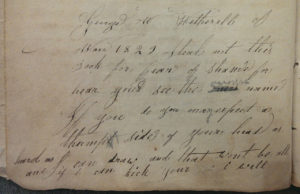 George W Wetherell
War 1829 steal not this
book for fear of Shame for
hear you see the names
if you do you may expect a
thump side of youre head as
hard as I can draw and that wont be all
and if I can kick your i will